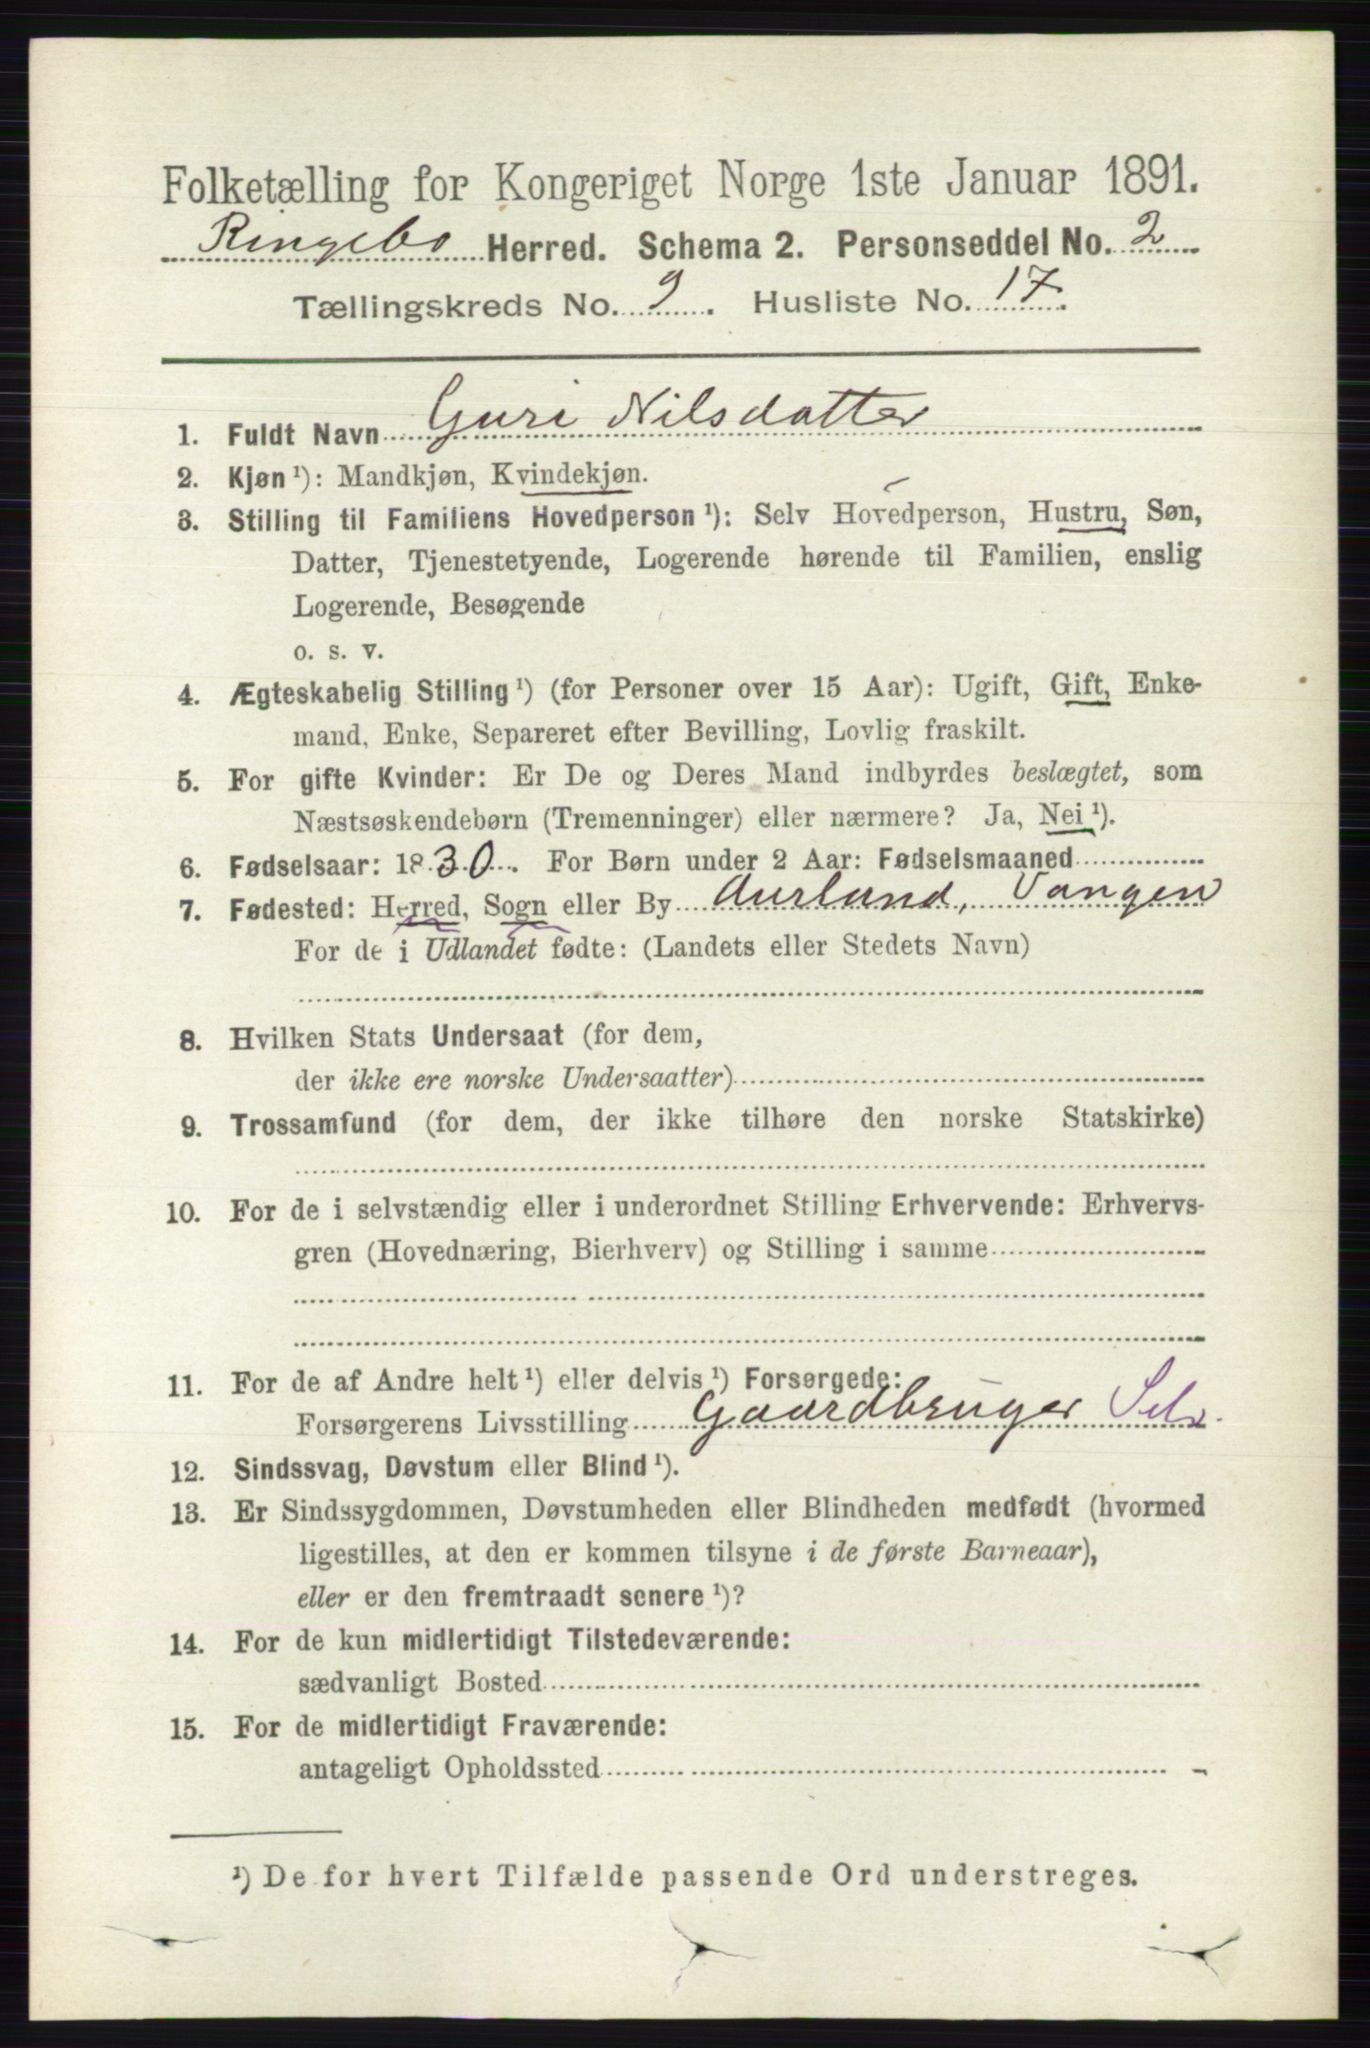 Folketælling for Kongeriget Norge 1ste Januar 1891.
Ringebo Herred. Schema 2. Personseddel No. 2
Tællingskreds No. 9. Husliste No. 17.
1. Fuldt Navn Guri Nilsdatter
2. Kjøn ¹): Mandkjøn, Kvindekjøn.
3. Stilling til Familiens Hovedperson ¹): Selv Hovedperson, Hustru, Søn,
Datter, Tjenestetyende, Logerende hørende til Familien, enslig
Logerende, Besøgende
o. s. v.
4. Ægteskabelig Stilling ¹) (for Personer over 15 Aar): Ugift, Gift, Enke-
mand, Enke, Separeret efter Bevilling, Lovlig fraskilt.
5. For gifte Kvinder: Er De og Deres Mand indbyrdes beslægtet, som
Næstsøskendebørn (Tremenninger) eller nærmere? Ja, Nei ¹).
6. Fødselsaar: 1830. For Børn under 2 Aar: Fødselsmaaned
7. Fødested: Herred, Sogn eller By Aurland, Vangen
For de i Udlandet fødte: (Landets eller Stedets Navn)
8. Hvilken Stats Undersaat (for dem,
der ikke ere norske Undersaatter)
9. Trossamfund (for dem, der ikke tilhøre den norske Statskirke)
10. For de i selvstændig eller i underordnet Stilling Erhvervende: Erhvervs-
gren (Hovednæring, Bierhverv) og Stilling i samme
11. For de af Andre helt ¹) eller delvis ¹) Forsørgede:
Forsørgerens Livsstilling Gaardbruger Selv.
12. Sindssvag, Døvstum eller Blind ¹).
13. Er Sindssygdommen, Døvstumheden eller Blindheden medfødt (hvormed
ligestilles, at den er kommen tilsyne i de første Barneaar),
eller er den fremtraadt senere ¹)?
14. For de kun midlertidigt Tilstedeværende:
sædvanligt Bosted
15. For de midlertidigt Fraværende:
antageligt Opholdssted
¹) De for hvert Tilfælde passende Ord understreges.